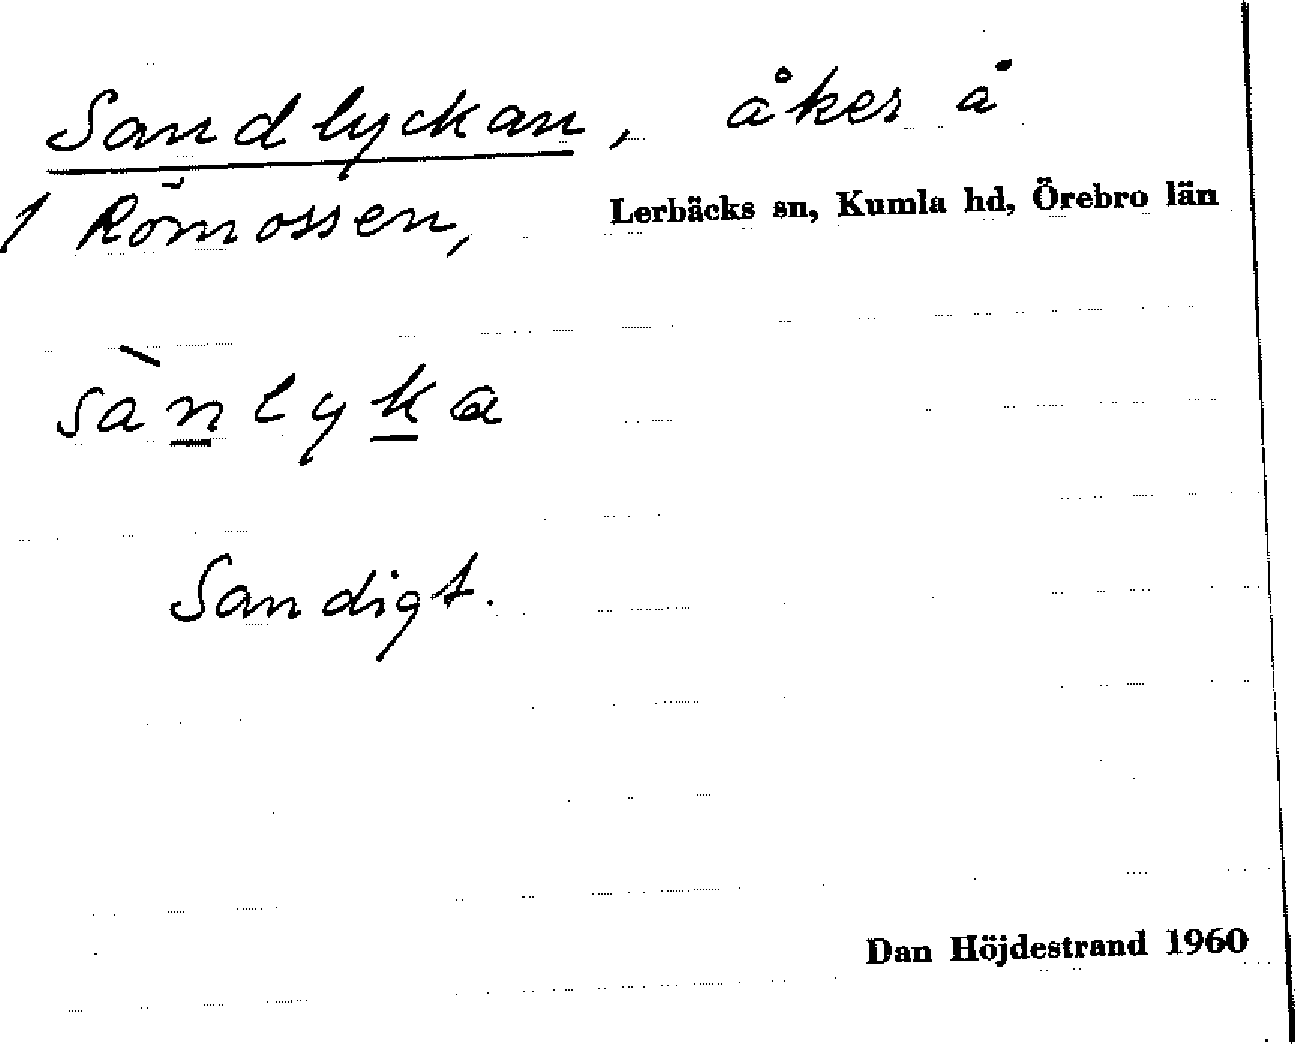 Sandlyckan, åker å
1 Römossen, Lerbäcks sn, Kumla hd, Örebro län
sànlyka
Sandigt.
Dan Höjdestrand 1960